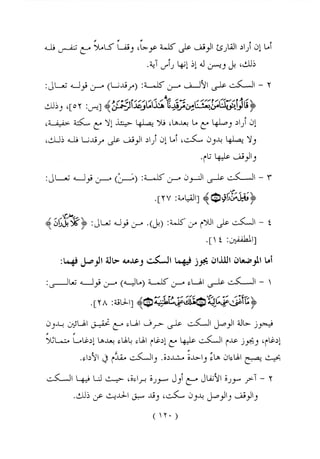 أما إن أراد القارئ الوقف على كلمة عوجا، وقفاً كاملاً مع التنفس فله
ذلك، ولم يرد له بل إنه رأس آية.
٢ - السكت على الألف من كلمة: (مرقدنا) من قوله تعالى:
﴿قَالُوا يَا وَيْلَنَا مَن بَعَثَنَا مِن مَّرْقَدِنَا ۜ هَٰذَا مَا وَعَدَ الرَّحْمَٰنُ﴾ [يس: ٥٢]، وذلك
إن أراد وصلها مع ما بعدها، فلا يصلها حينئذ إلا مع سكت خفيف،
ولا يصلها بدون سكت، أما إن أراد الوقف على مرقدنا فله ذلك،
والوقف عليها تام.
٣ - السكت على النون من كلمة: (مَنْ) من قوله تعالى:
﴿وَقِيلَ مَنْ ۜ رَاقٍ﴾ [القيامة: ٢٧].
٤ - السكت على اللام من كلمة: (بل). من قوله تعالى: ﴿بَلْ ۜ رَانَ﴾
[المطففين: ١٤].
أما الموضعان اللذان يجوز فيهما السكت وعدمه حالة الوصل فهما:
١ - السكت على هاء من كلمة (ماليه) من قوله تعالى:
﴿مَا أَغْنَىٰ عَنِّي مَالِيَهْ ۜ هَلَكَ عَنِّي سُلْطَانِيَهْ﴾ [الحاقة: ٢٨].
فيجوز حالة الوصل السكت على حرف الهاء مع تحقيق الهائين بدون
إدغام، ويجوز عدم السكت فيها مع إدغام الهاء بالهاء بعدها إدغاماً متماثلاً
بحيث تصبح الهاءان هاء واحدة مشددة. والسكت مقدم في الأداء.
٢ - آخر سورة الأنفال مع أول سورة براءة، حيث لنا فيها السكت
والوصل بدون سكت، وقد مر الحديث عن ذلك.
(١٢٠)